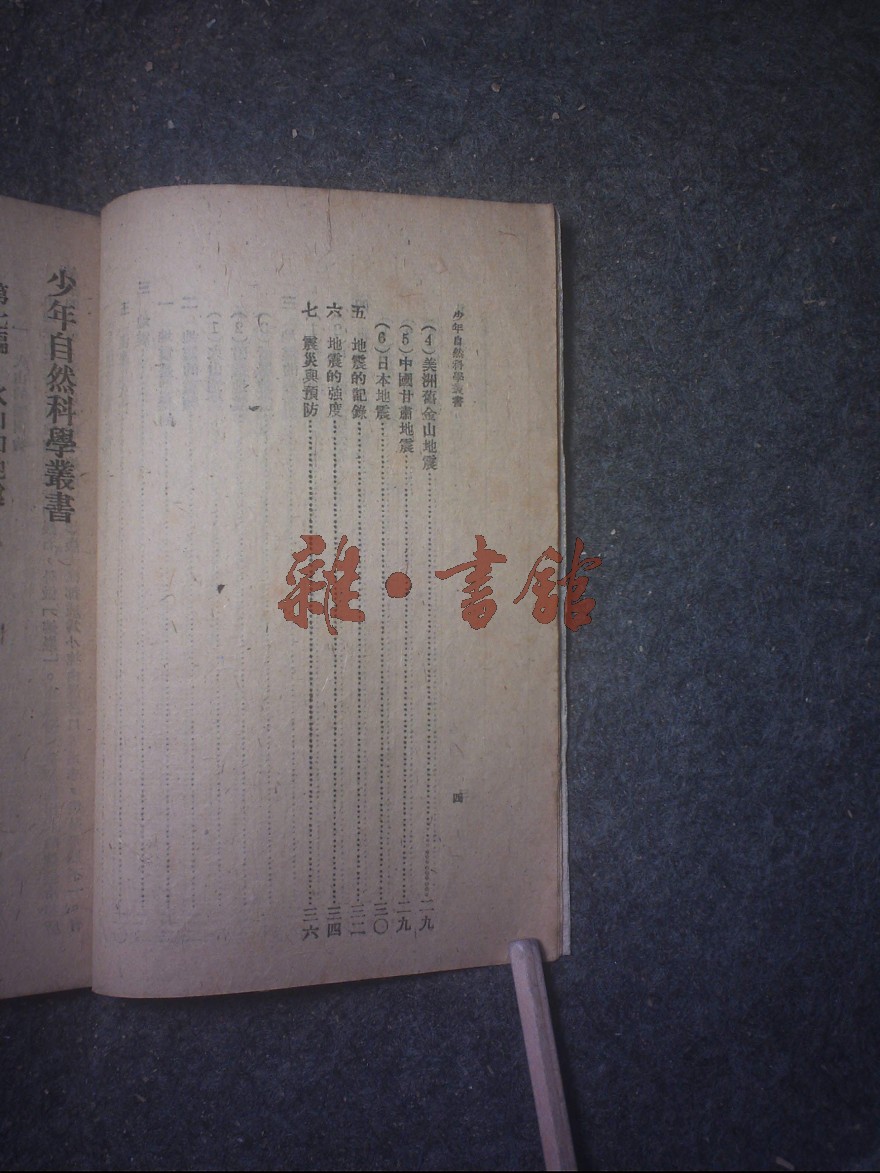 少年自然科學叢書
四
(4)美洲舊金山地震……二九
(5)中國甘肅地震……二九
(6)日本地震……三〇
五 地震的記錄……三二
六 地震的強度……三四
七 震災與預防……三六
少年自然科學叢書
雜·書館